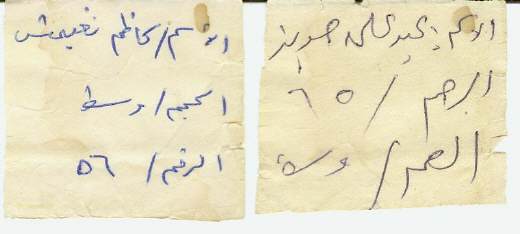 الاسم / علي
الرقم / ٦٥
الحجم / وسط
الاسم / كاظم نغيمش
الحجم / وسط
الرقم / ٥٦